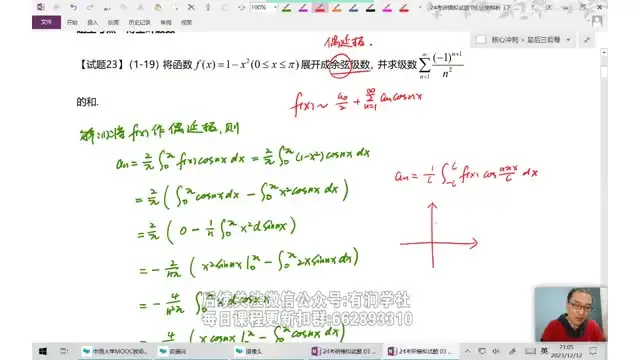 文件 开始 插入 绘图 历史记录 审阅 视图
100%
核心冲刺 > 最后三套卷
偶延拓.
【试题23】(1-19) 将函数 f(x)=1-x²(0≤x≤π)展开成余弦级数, 并求级数 ∑_{n=1}^{∞} (-1)^{n+1}/n²
的和.
f(x)~ a₀/2 + ∑_{n=1}^{∞} aₙcosnx
解:(1)将f(x)作偶延拓, 则
aₙ= 2/π ∫₀^π f(x)cosnx dx = 2/π ∫₀^π (1-x²)cosnx dx
aₙ= 1/l ∫_{-l}^{l} f(x) cos nπx/l dx
= 2/π ( ∫₀^π cosnx dx - ∫₀^π x²cosnx dx )
= 2/π ( 0 - 1/n ∫₀^π x² d sinnx )
= - 2/nπ ( x²sinnx |₀^π - ∫₀^π 2x sinnx dx )
= - 4/n²π ∫₀^π x d cosnx
= - 4/n²π ( x cosnx |₀^π - ∫₀^π cosnx dx )
后续关注微信公众号:有润学社
每日课程更新扣群:662893310
中国大学MOOC教师
摄像头
24考研模拟试题 03
24考研模拟试题 03
英
21:05
2023/12/12